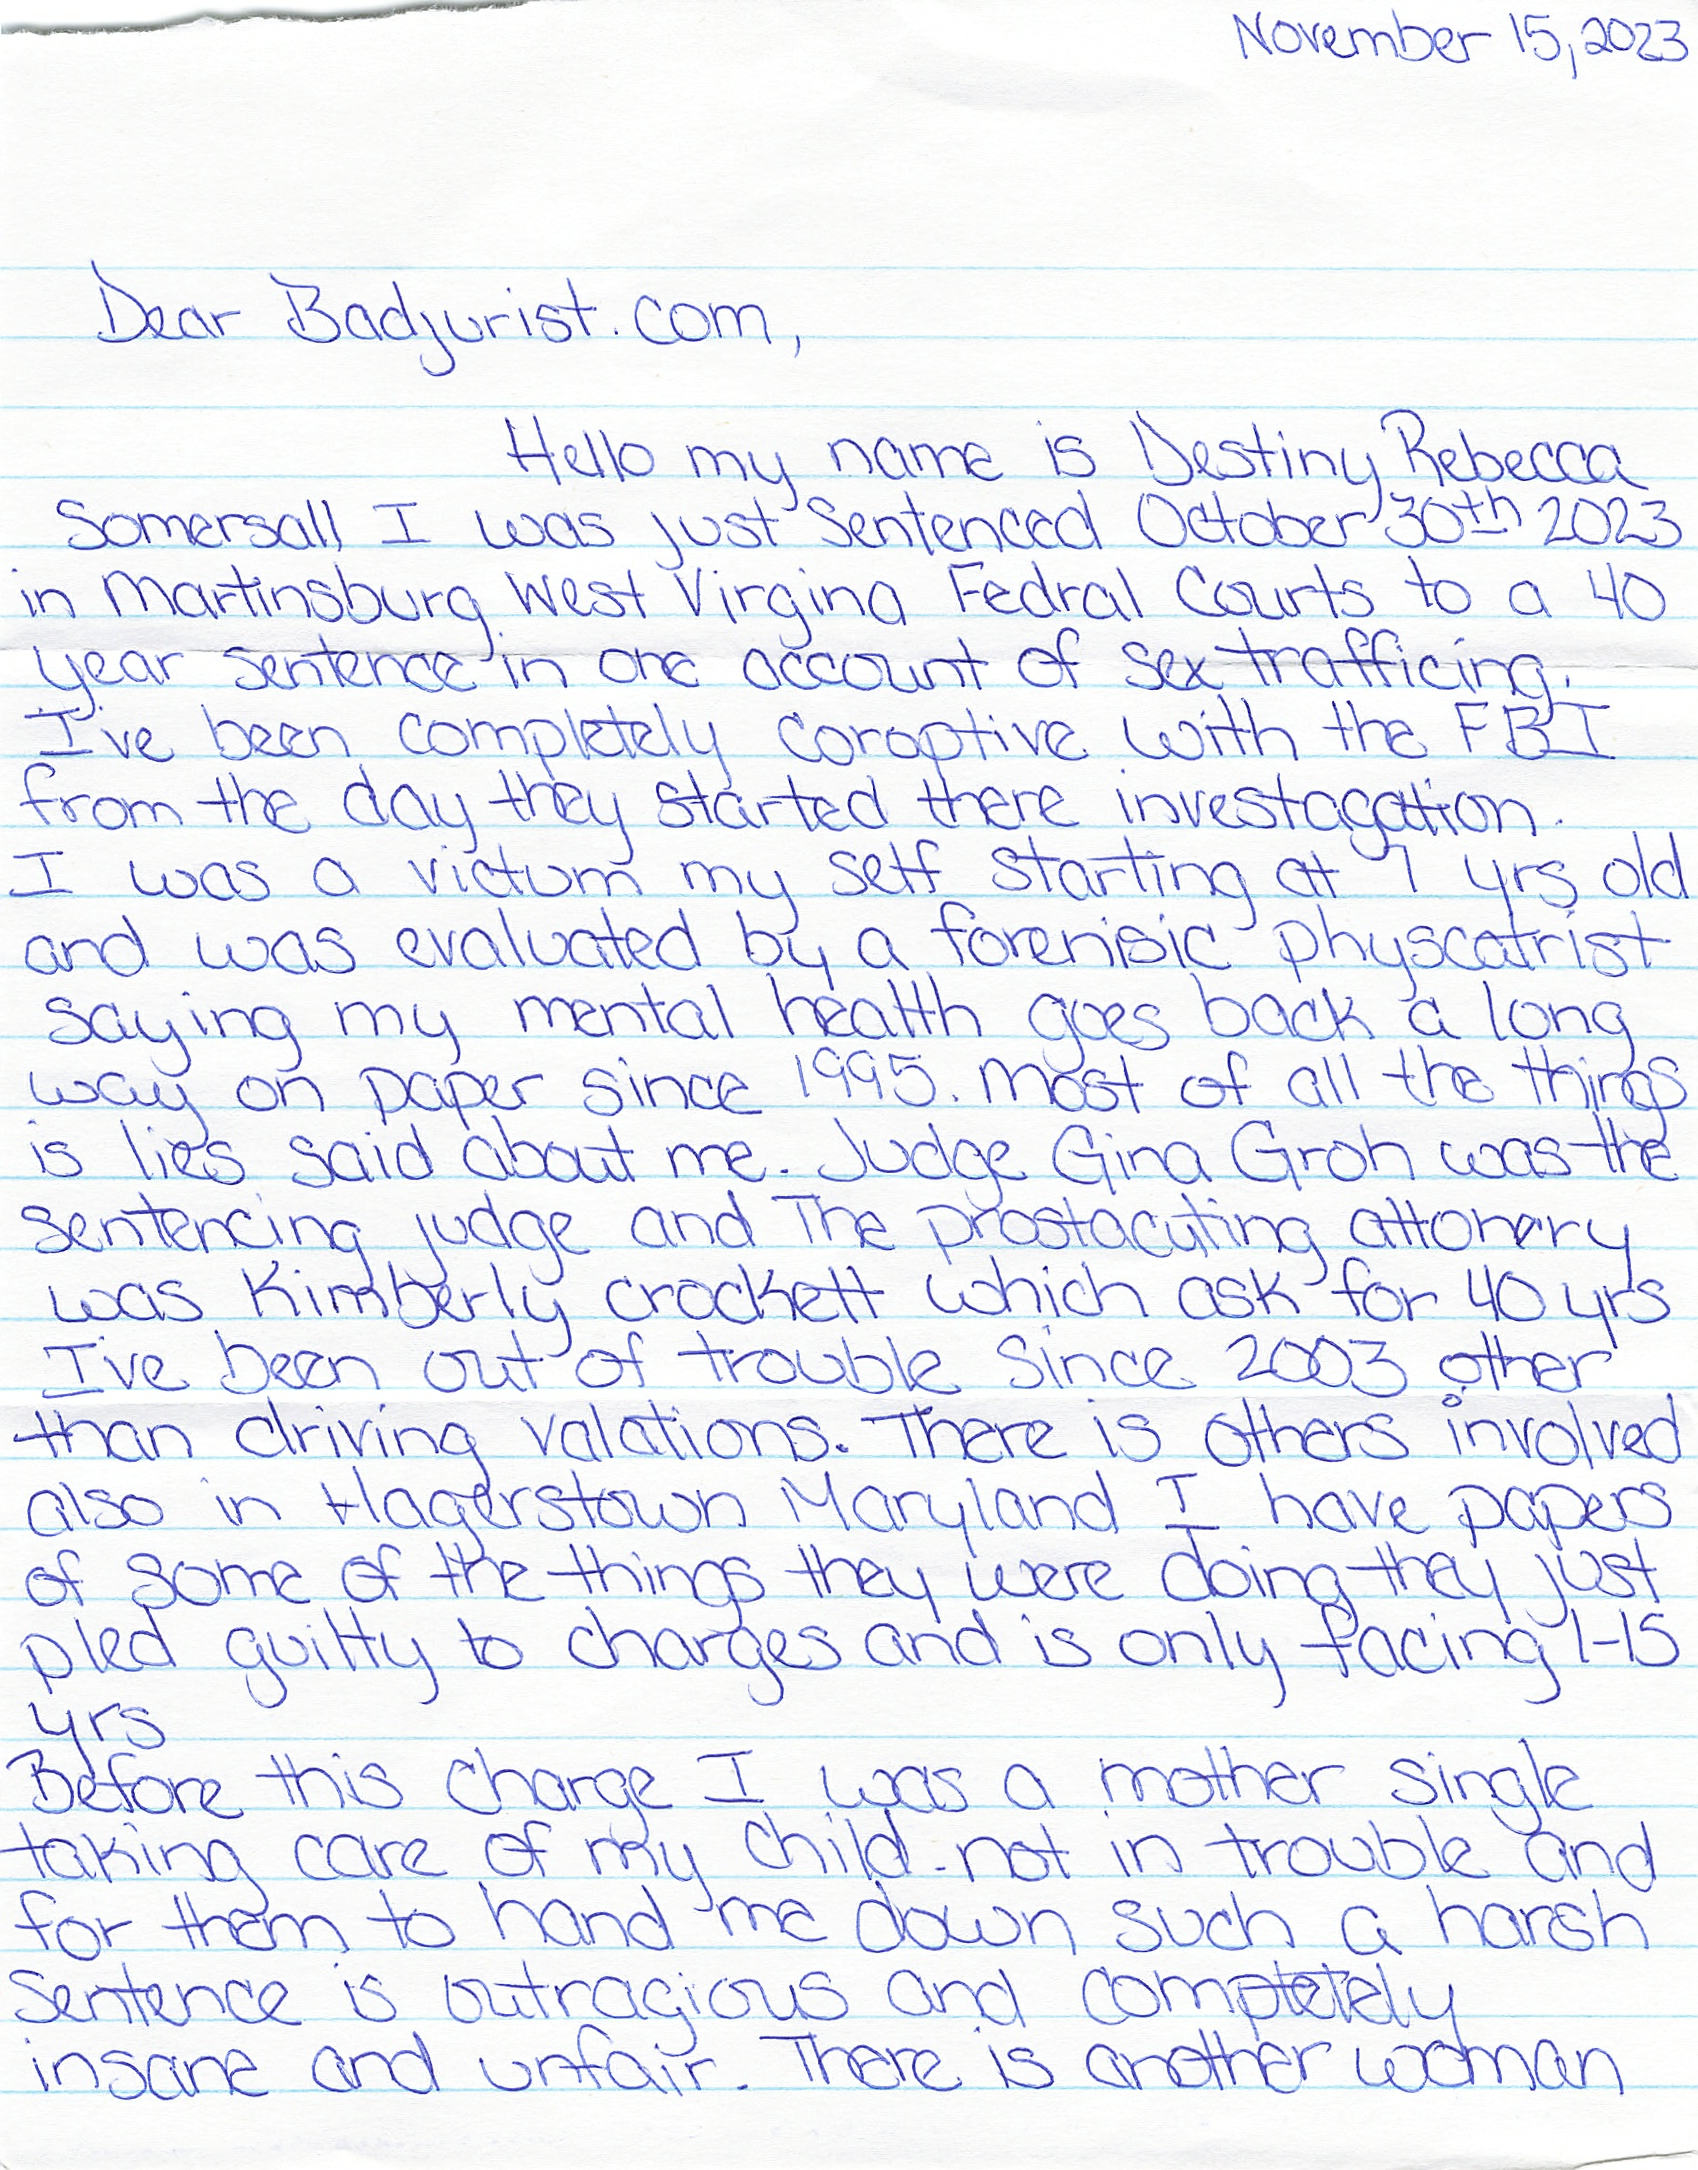 November 15, 2023
Dear Badjurist.com,
Hello my name is Destiny Rebecca
Somersall I was just Sentenced October 30th 2023
in Martinsburg West Virgina Fedral Courts to a 40
year sentence in one account of sex trafficing.
I've been completely coroptive with the FBI
from the day they started there investagation.
I was a victum my self starting at 7 yrs old
and was evaluated by a forenisic physcatrist
saying my mental health goes back a long
way on paper since 1995. Most of all the things
is lies said about me. Judge Gina Groh was the
sentencing judge and The prostacuting attonery
was Kimberly crockett which ask for 40 yrs
I've been out of trouble since 2003 other
than driving valations. There is others involved
also in Hagerstown Maryland I have papers
of some of the things they were doing they just
pled guilty to charges and is only facing 1-15
yrs
Before this charge I was a mother single
taking care of my child not in trouble and
for them to hand me down such a harsh
Sentence is outragious and completely
insane and unfair. There is another woman